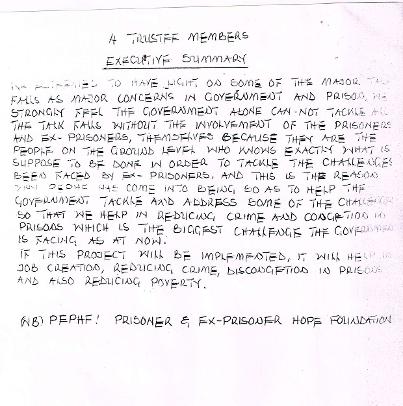 A TRUSTEE MEMBERS
EXECUTIVE SUMMARY
TO HAVE LIGHT ON SOME OF THE MAJOR
FALLS AS MAJOR CONCERNS IN GOVERNMENT AND PRISON, WE
STRONGLY FEEL THE GOVERNMENT ALONE CAN NOT TACKLE ALL
THE TALK FALLS WITHOUT THE INVOLVEMENT OF THE PRISONERS
AND EX-PRISONERS, THEMSELVES BECAUSE THEY ARE THE
PEOPLE ON THE GROUND LEVEL WHO KNOWS EXACTLY WHAT IS
SUPPOSE TO BE DONE IN ORDER TO TACKLE THE CHALLENGES
BEEN FACED BY EX-PRISONERS, AND THIS IS THE REASON
WHY PEPHF HAS COME INTO BEING SO AS TO HELP THE
GOVERNMENT TACKLE AND ADDRESS SOME OF THE CHALLENGES
SO THAT WE HELP IN REDUCING CRIME AND CONGETION IN
PRISONS WHICH IS THE BIGGEST CHALLENGE THE GOVERNMENT
IS FACING AS AT NOW.
IF THIS PROJECT WILL BE IMPLEMENTED, IT WILL HELP IN
JOB CREATION, REDUCING CRIME, DISCONGETION IN PRISONS
AND ALSO REDUCING POVERTY.
(NB) PEPHF! PRISONER & EX-PRISONER HOPE FOUNDATION